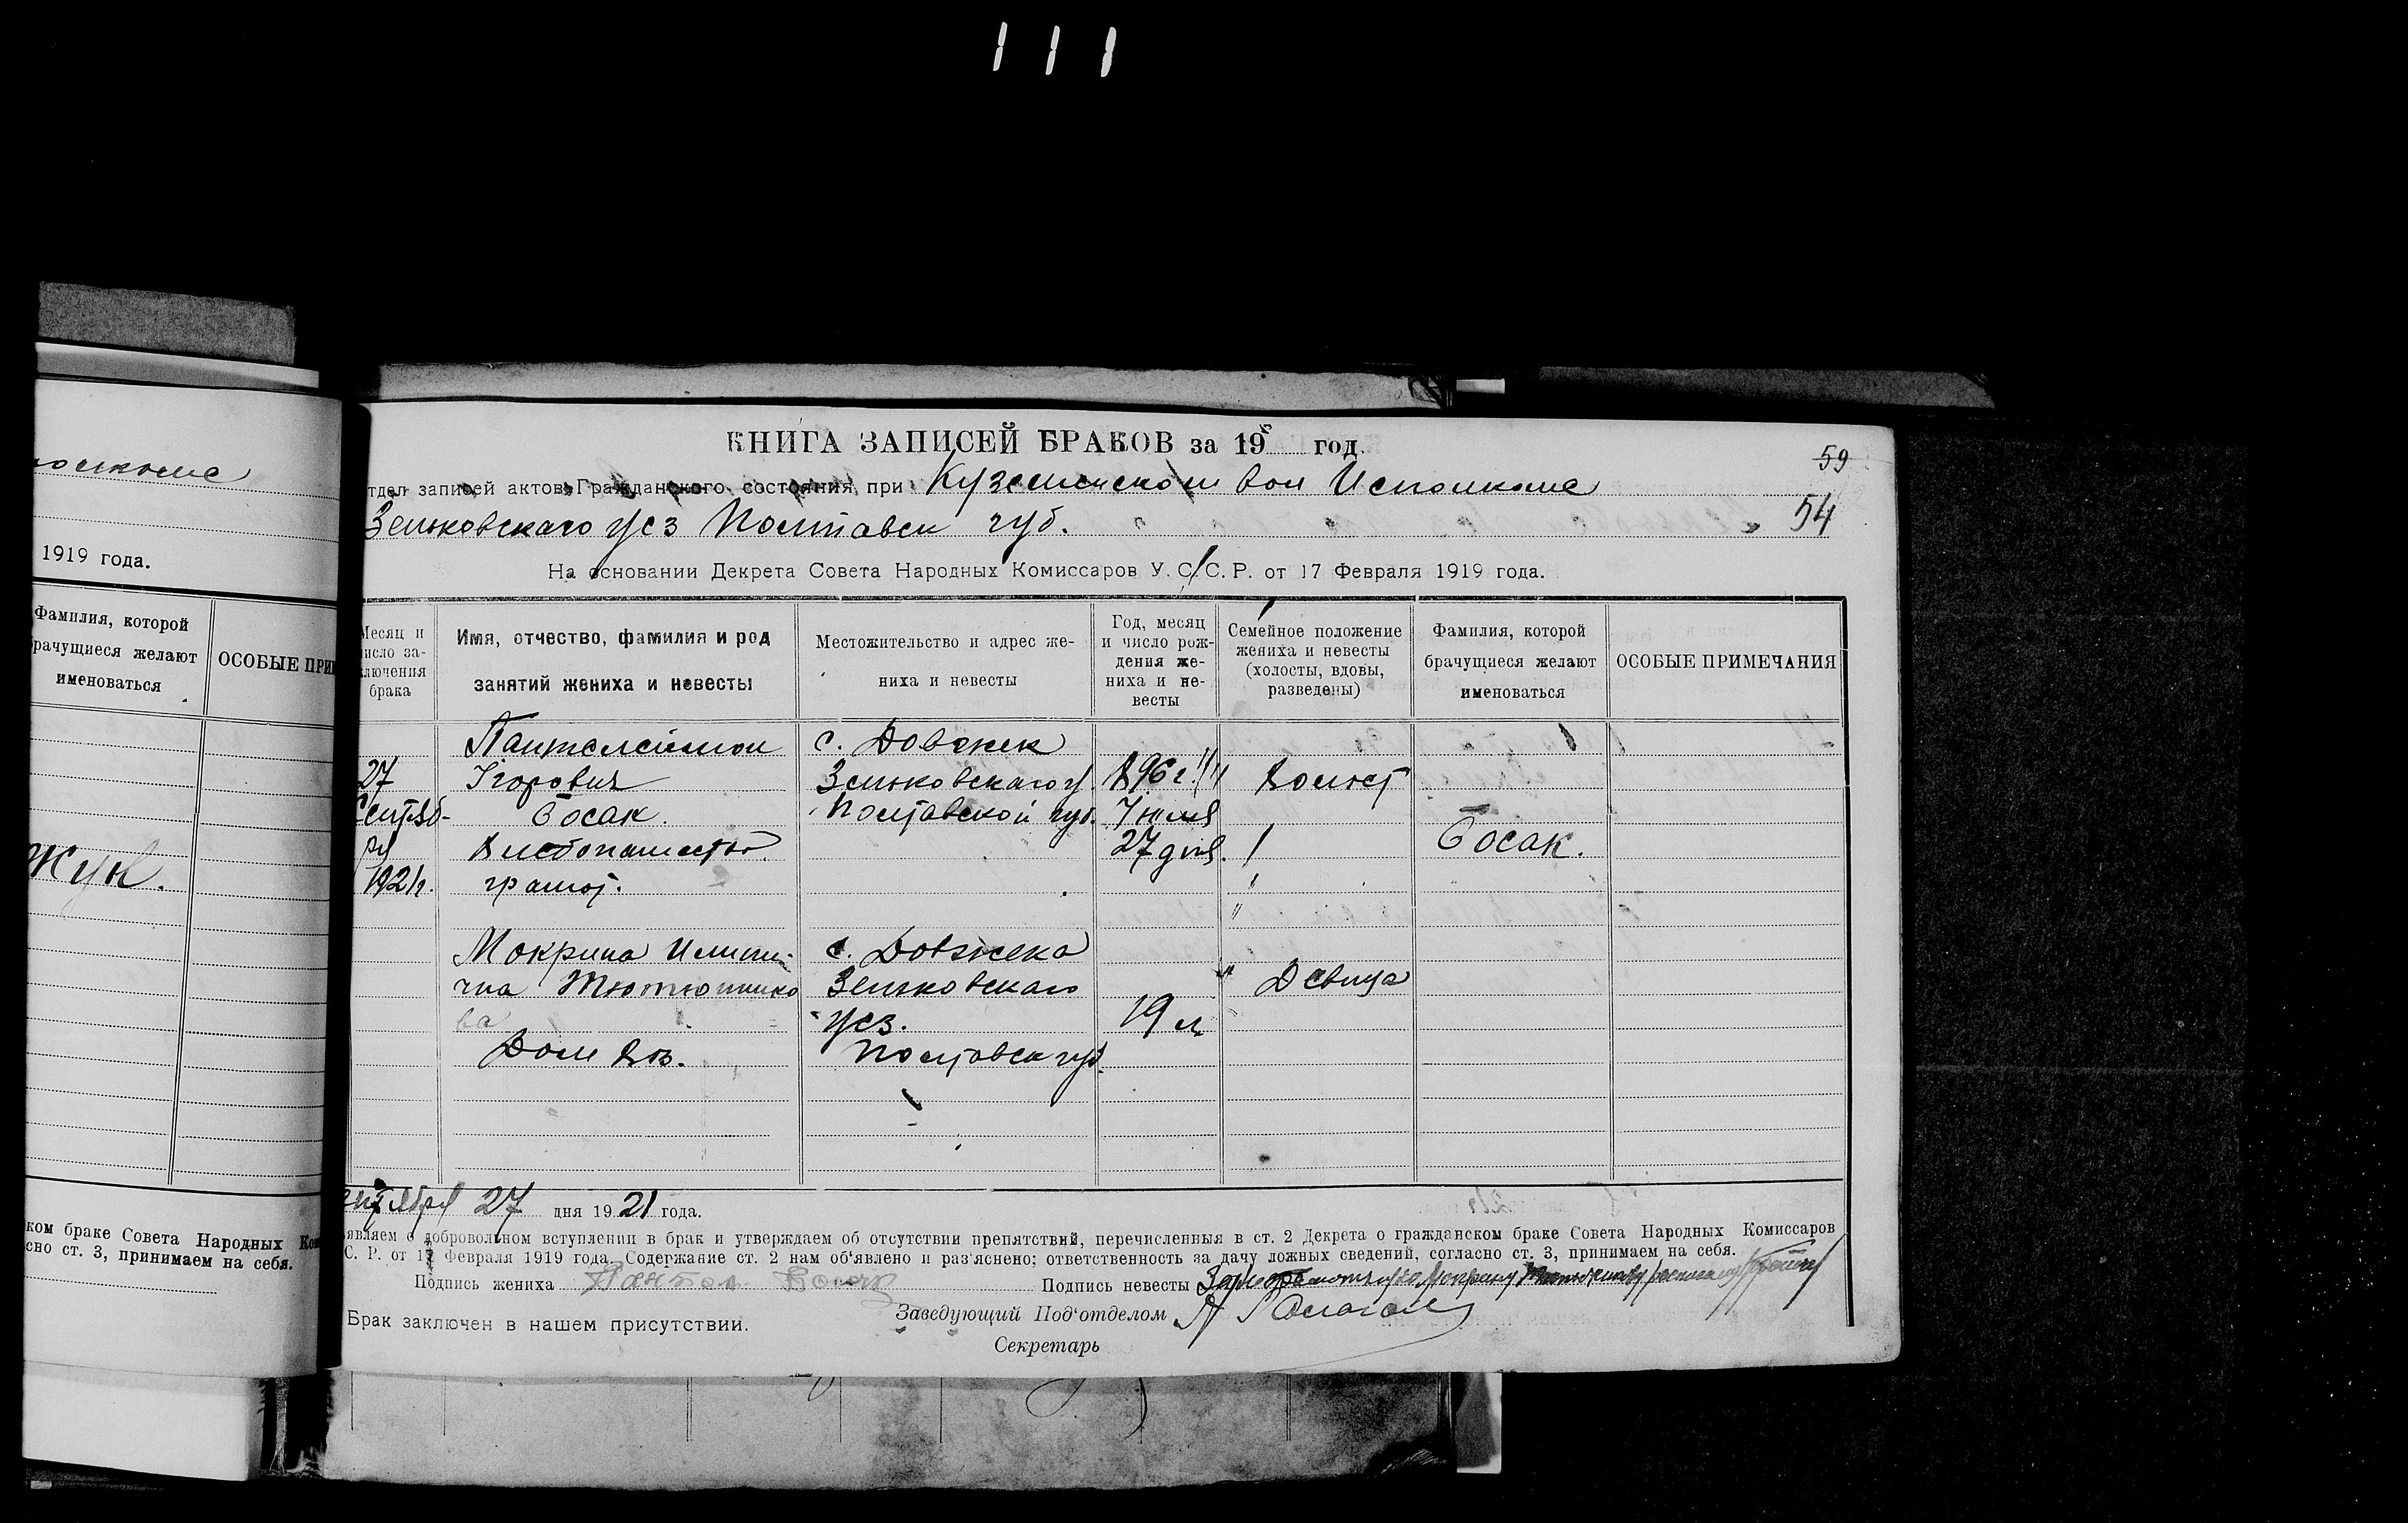 111
КНИГА ЗАПИСЕЙ БРАКОВ за 19 год.
59
тдел записей актов Гражданского состояния при Куземенском вол Исполкоме
Зеньковскаго уез Полтавск губ.
54
На основании Декрета Совета Народных Комиссаров У. С. С. Р. от 17 Февраля 1919 года.
Месяц и число заключения брака
Имя, отчество, фамилия и род занятий жениха и невесты
Местожительство и адрес жениха и невесты
Год, месяц и число рождения жениха и невесты
Семейное положение жениха и невесты (холосты, вдовы, разведены)
Фамилия, которой брачущиеся желают именоваться
ОСОБЫЕ ПРИМЕЧАНИЯ
27
Сентяб-
ря
1921г.
Пантелеймон
Ігорович
Босак.
Хлебопашество.
грамот.
с. Довжек
Зеньковскаго у.
Полтавской губ.
896 г.
7 июля
27 дня.
Холост
Босак.
Мокрина Илини-
чна Тютюннико
ва
Дом хоз.
с. Довжека
Зеньковскаго
уез.
Полтавск губ.
19 л.
Девица
ентября 27 дня 1921 года.
являем о добровольном вступлении в брак и утверждаем об отсутствии препятствий, перечисленныя в ст. 2 Декрета о гражданском браке Совета Народных Комиссаров
С. Р. от 17 Февраля 1919 года. Содержание ст. 2 нам об'явлено и раз'яснено; ответственность за дачу ложных сведений, согласно ст. 3, принимаем на себя.
Подпись жениха Пантел Босак
Подпись невесты
Заведующий Под'отделом
Брак заключен в нашем присутствии.
Секретарь
1919 года.
Фамилия, которой
брачущиеся желают
именоваться
ОСОБЫЕ ПРИ
Жук.
ком браке Совета Народных Ком
сно ст. 3, принимаем на себя.